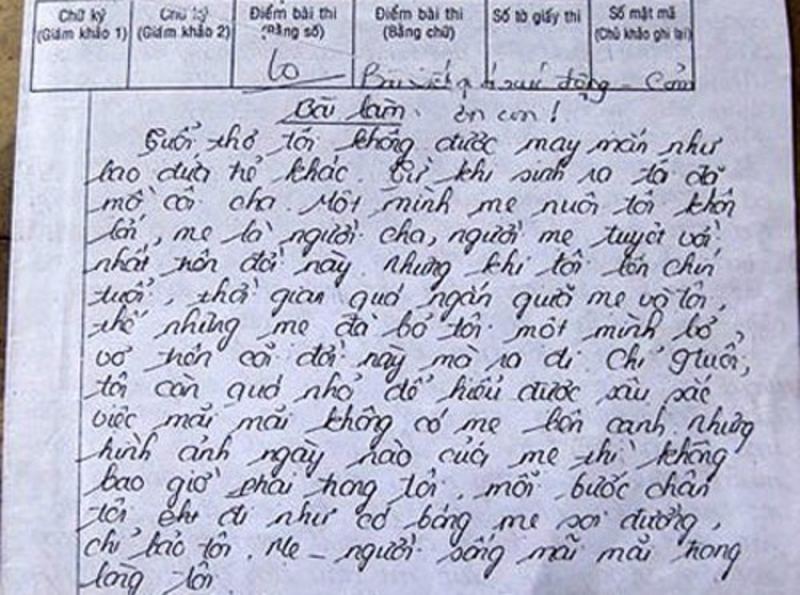 Chữ ký Chữ ký Điểm bài thi Điểm bài thi Số tờ giấy thi Số mật mã
(Giám khảo 1) (Giám khảo 2) (Bằng số) (Bằng chữ) (Chủ khảo ghi lại)
10 Bài viết xúc động - Cảm
Bài làm. ơn con!
Tuổi thơ tôi không được may mắn như
bao đứa trẻ khác. Từ khi sinh ra tôi đã
mồ côi cha. Một mình mẹ nuôi tôi khôn
lớn, mẹ là người cha, người mẹ tuyệt vời
nhất trên đời này. Nhưng khi tôi lên chín
tuổi, thời gian quá ngắn giữa mẹ và tôi,
thế nhưng mẹ đã bỏ tôi một mình bơ
vơ trên cõi đời này mà ra đi. Chỉ 9 tuổi,
tôi còn quá nhỏ để hiểu được sâu sắc
việc mãi mãi không có mẹ bên cạnh. Nhưng
hình ảnh ngày nào của mẹ thì không
bao giờ phai trong tôi. Mỗi bước chân
tôi đi như có bóng mẹ soi đường,
chỉ bảo tôi. Mẹ - người sống mãi mãi trong
lòng tôi.